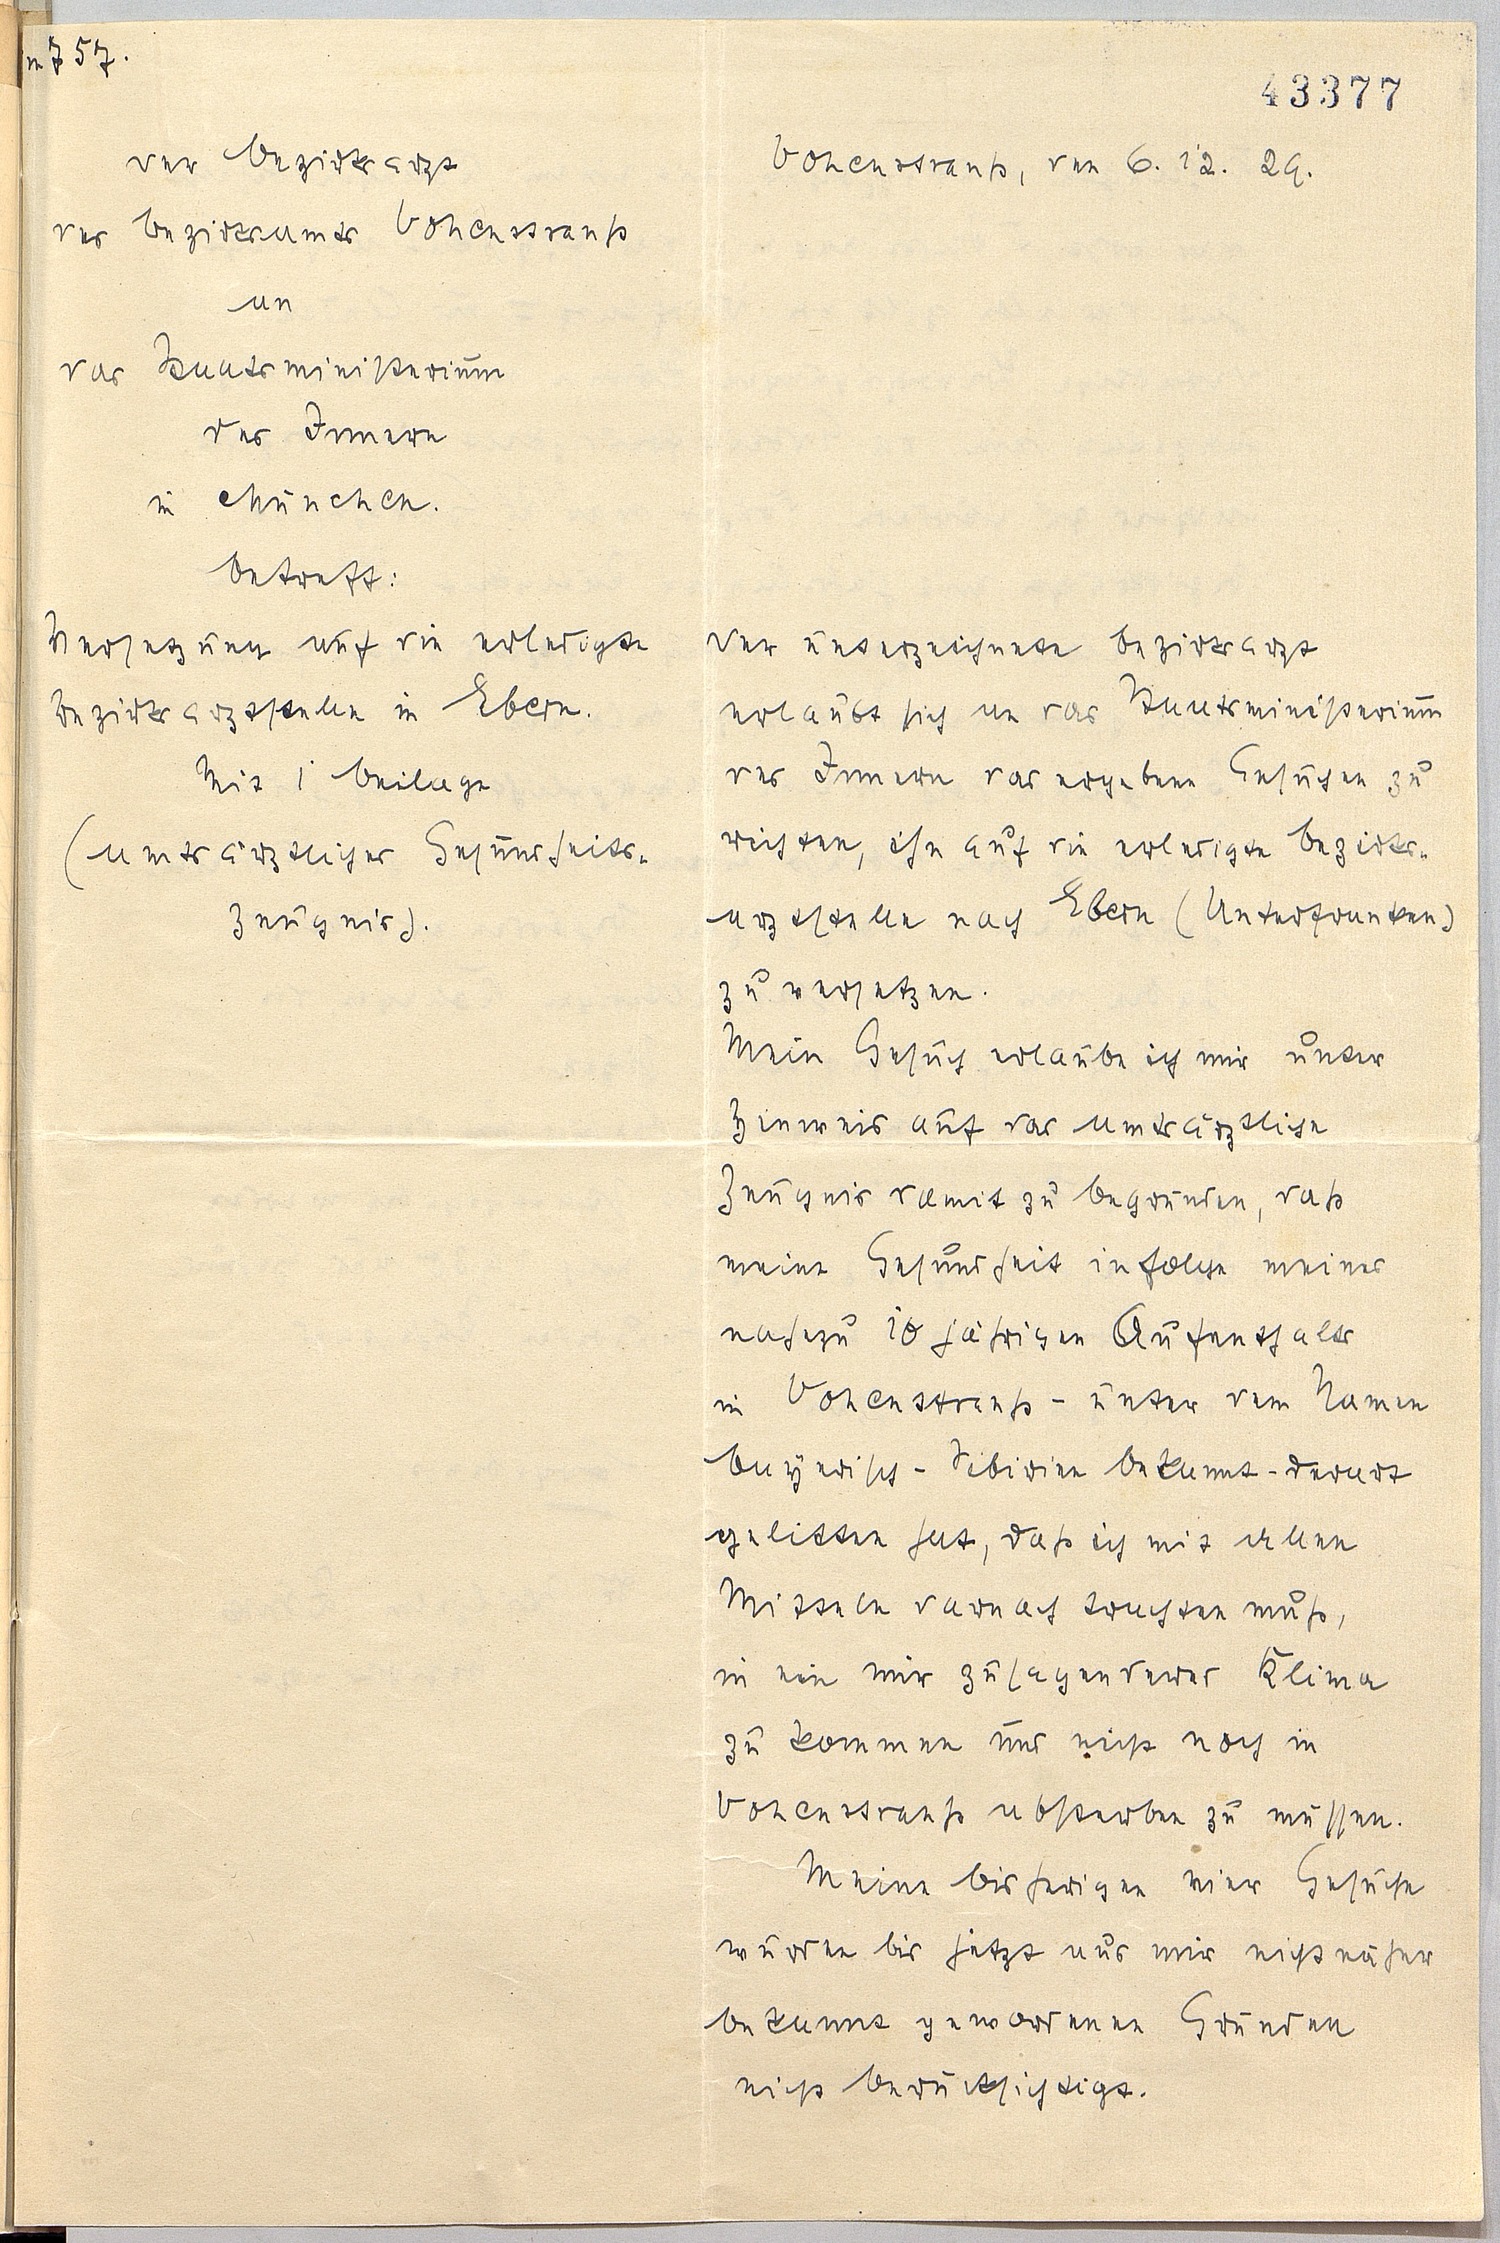 757.
43377
Der Bezirksarzt
des Bezirksamts Vohenstrauß
an
das Staatsministerium
des Innern
in München.
Betreff:
Versetzung auf die erledigte
Bezirksarztstelle in Ebern.
Mit 1 Beilage
(Amtsärztliches Gesundheits-
zeugnis).
Vohenstrauß, den 6. 12. 29.
Der unterzeichnete Bezirksarzt
erlaubt sich an das Staatsministerium
des Innern das ergebene Gesuchen zu
richten, ihn auf die erledigte Bezirks-
arztstelle nach Ebern (Unterfranken)
zu versetzen.
Mein Gesuch erlaube ich mir unter
Hinweis auf das amtsärztliche
Zeugnis damit zu begründen, daß
meine Gesundheit infolge meines
nahezu 10 jährigen Aufenthalts
in Vohenstrauß - unter dem Namen
bayerisch - Sibirien bekannt - derart
gelitten hat, daß ich mit allen
Mitteln darnach trachten muß,
in ein mir zusagenderes Klima
zu kommen und nicht noch in
Vohenstrauß absterben zu müssen.
Meine bisherigen vier Gesuche
wurden bis jetzt aus mir nicht näher
bekannt gewordenen Gründen
nicht berücksichtigt.